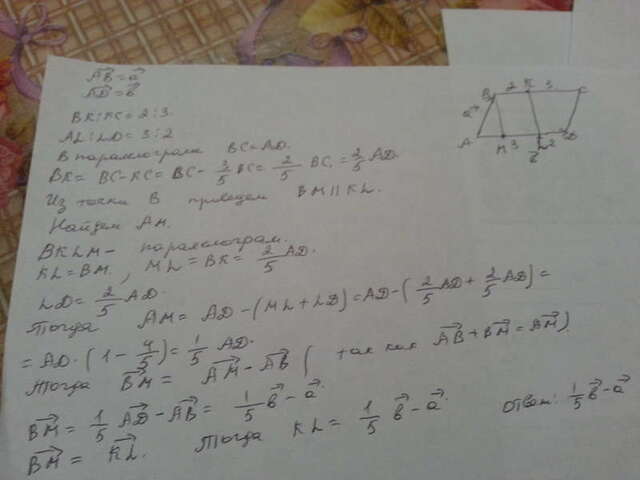 AB⃗ = a⃗
AD⃗ = b⃗
BK:KC = 2:3.
AL:LD = 3:2
В параллограмм BC = AD.
BK = BC - KC = BC - 3/5 BC = 2/5 BC = 2/5 AD.
Из точки B проведем BM || KL.
Найдем AM.
BKLM - параллограм.
KL = BM, ML = BK = 2/5 AD.
LD = 2/5 AD.
Тогда AM = AD - (ML + LD) = AD - (2/5 AD + 2/5 AD) =
= AD · (1 - 4/5) = 1/5 AD.
Тогда BM⃗ = AM⃗ - AB⃗ (так как AB⃗ + BM⃗ = AM⃗)
BM⃗ = 1/5 AD⃗ - AB⃗ = 1/5 b⃗ - a⃗.
BM⃗ = KL⃗. Тогда KL = 1/5 b⃗ - a⃗. Ответ: 1/5 b⃗ - a⃗
B 2 K 3 C
a⃗
A M 3 L 2 D